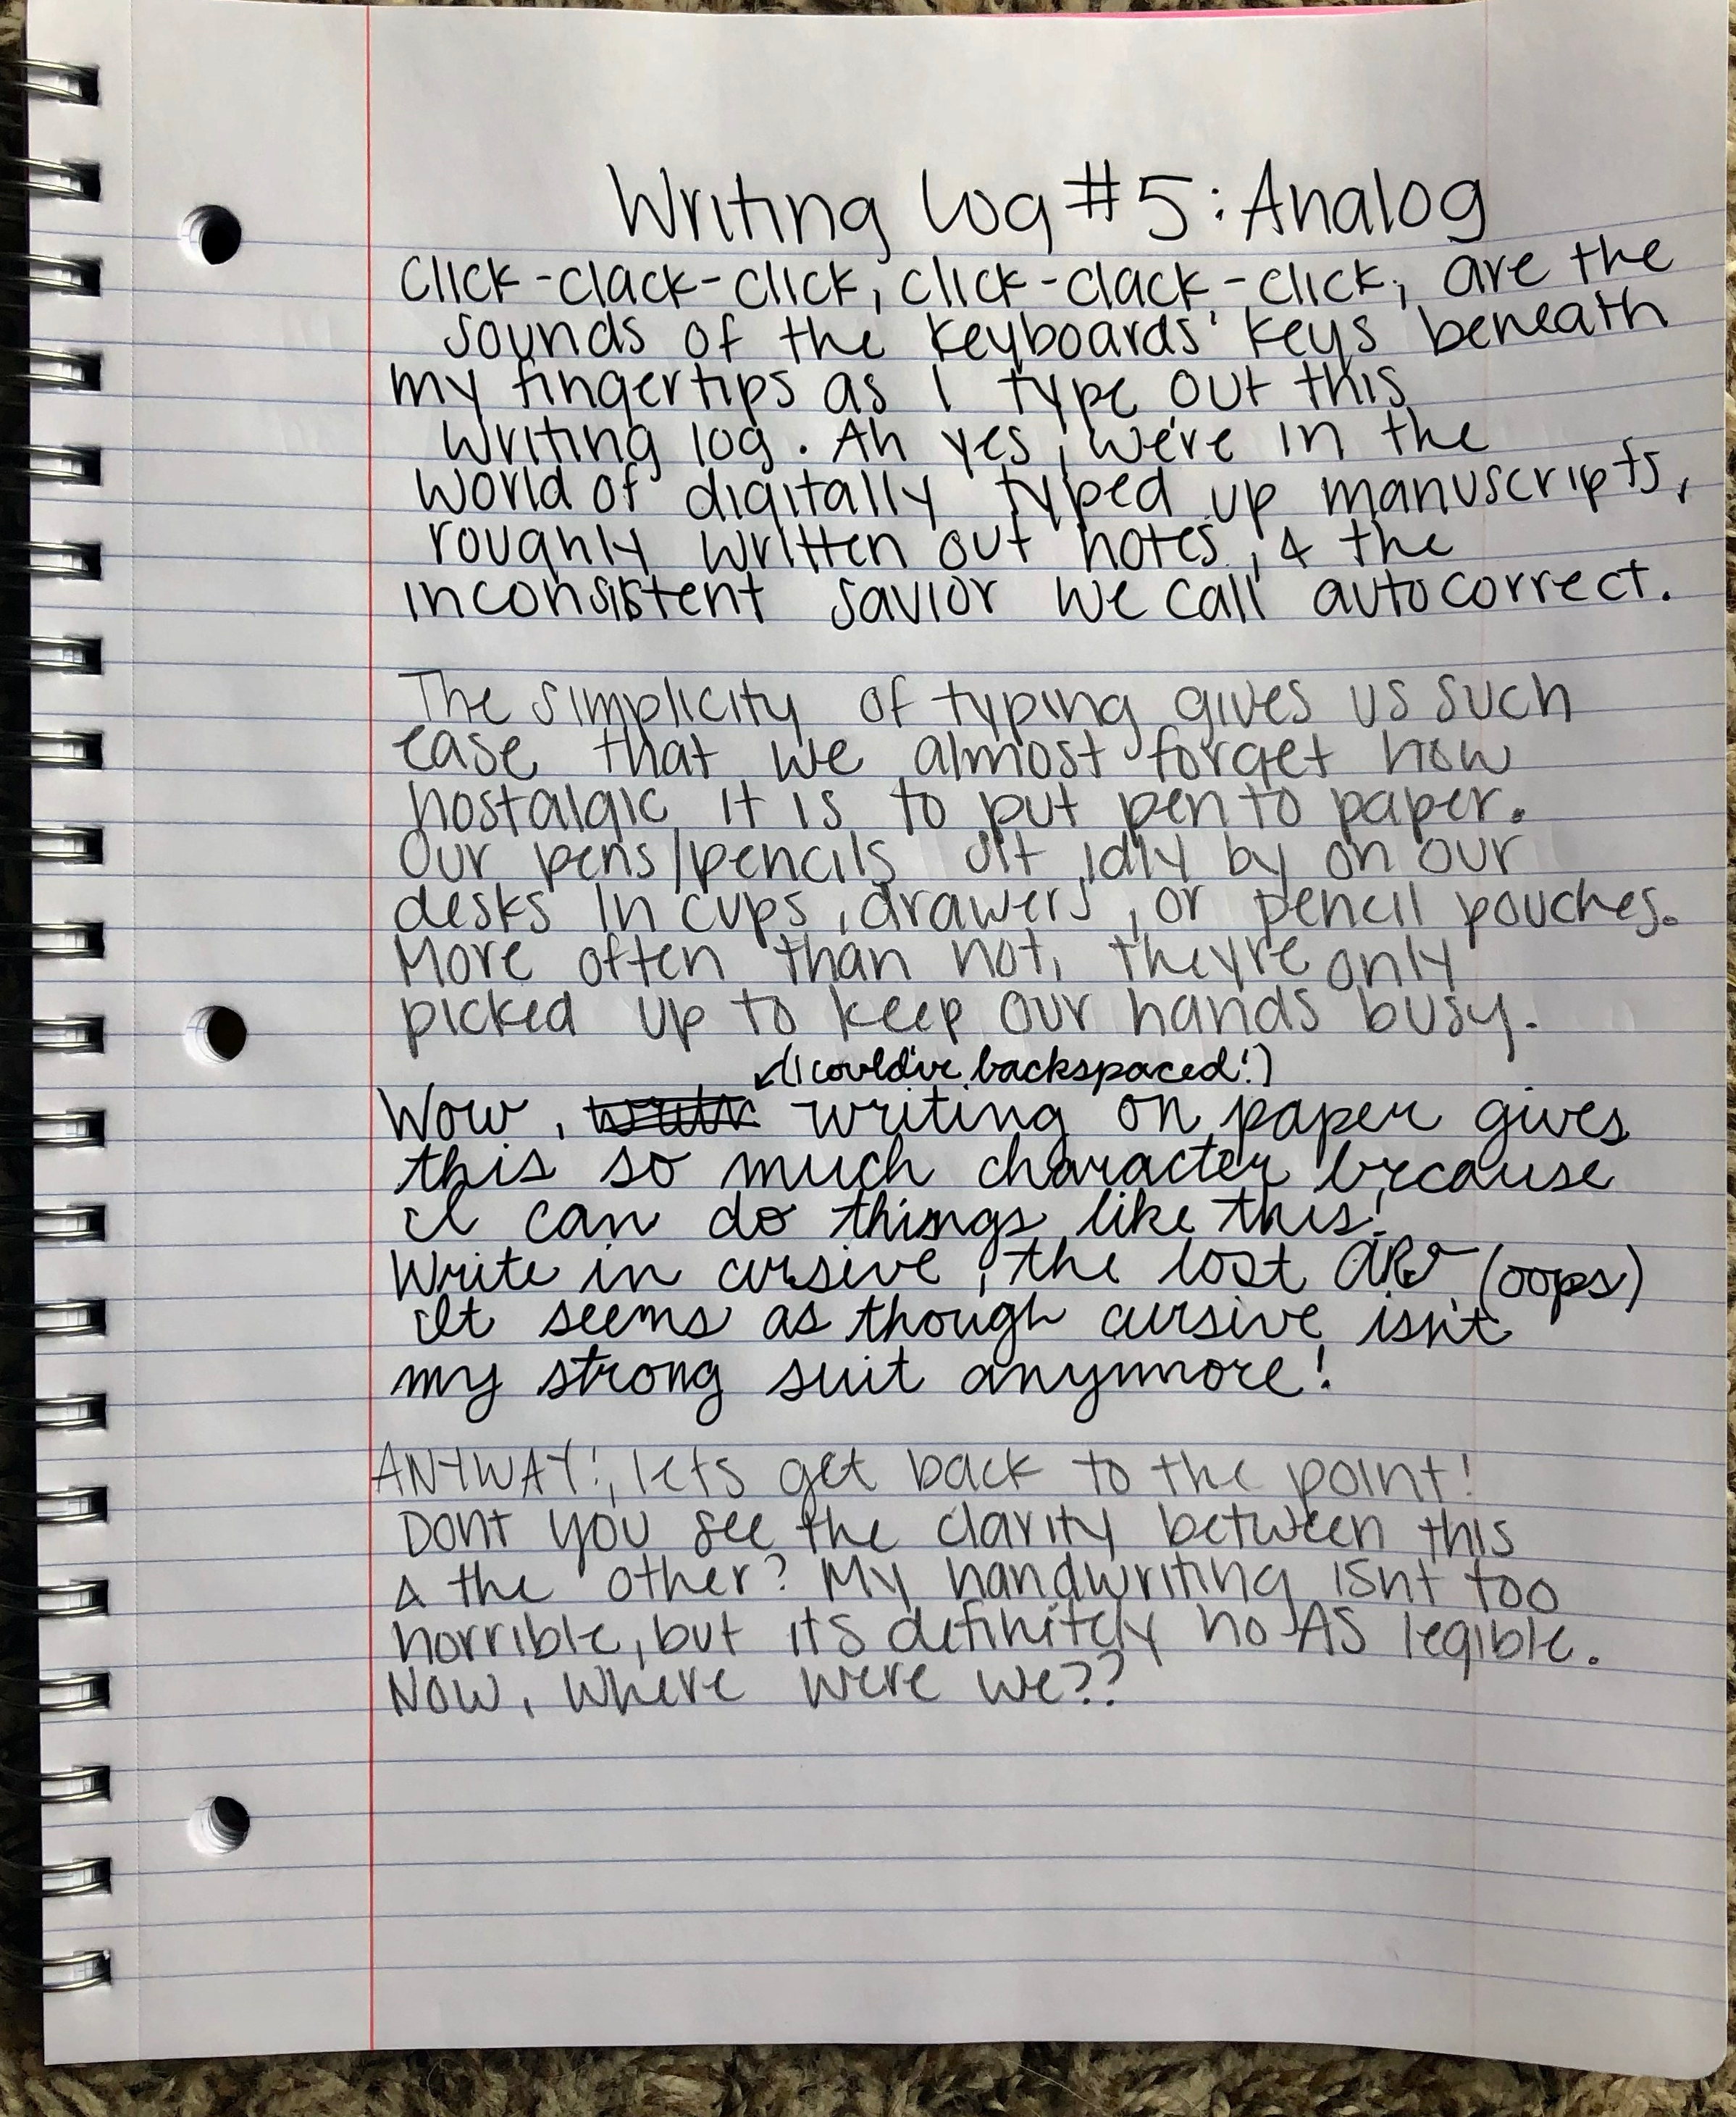 Writing Log #5: Analog
Click-clack-click, click-clack-click, are the
sounds of the keyboards' keys beneath
my fingertips as I type out this
writing log. Ah yes, we're in the
world of digitally typed up manuscripts,
roughly written out notes, & the
inconsistent savior we call autocorrect.
The simplicity of typing gives us such
ease that we almost forget how
nostalgic it is to put pen to paper.
Our pens/pencils sit idly by on our
desks in cups, drawers, or pencil pouches.
More often than not, theyre only
picked up to keep our hands busy.
(I could've backspaced!)
Wow, writing on paper gives
this so much character because
I can do things like this!
Write in cursive, the lost art (oops)
It seems as though cursive isn't
my strong suit anymore!
ANYWAY!, lets get back to the point!
Dont you see the clarity between this
& the other? My handwriting isnt too
horrible, but its definitely no AS legible.
Now, where were we??